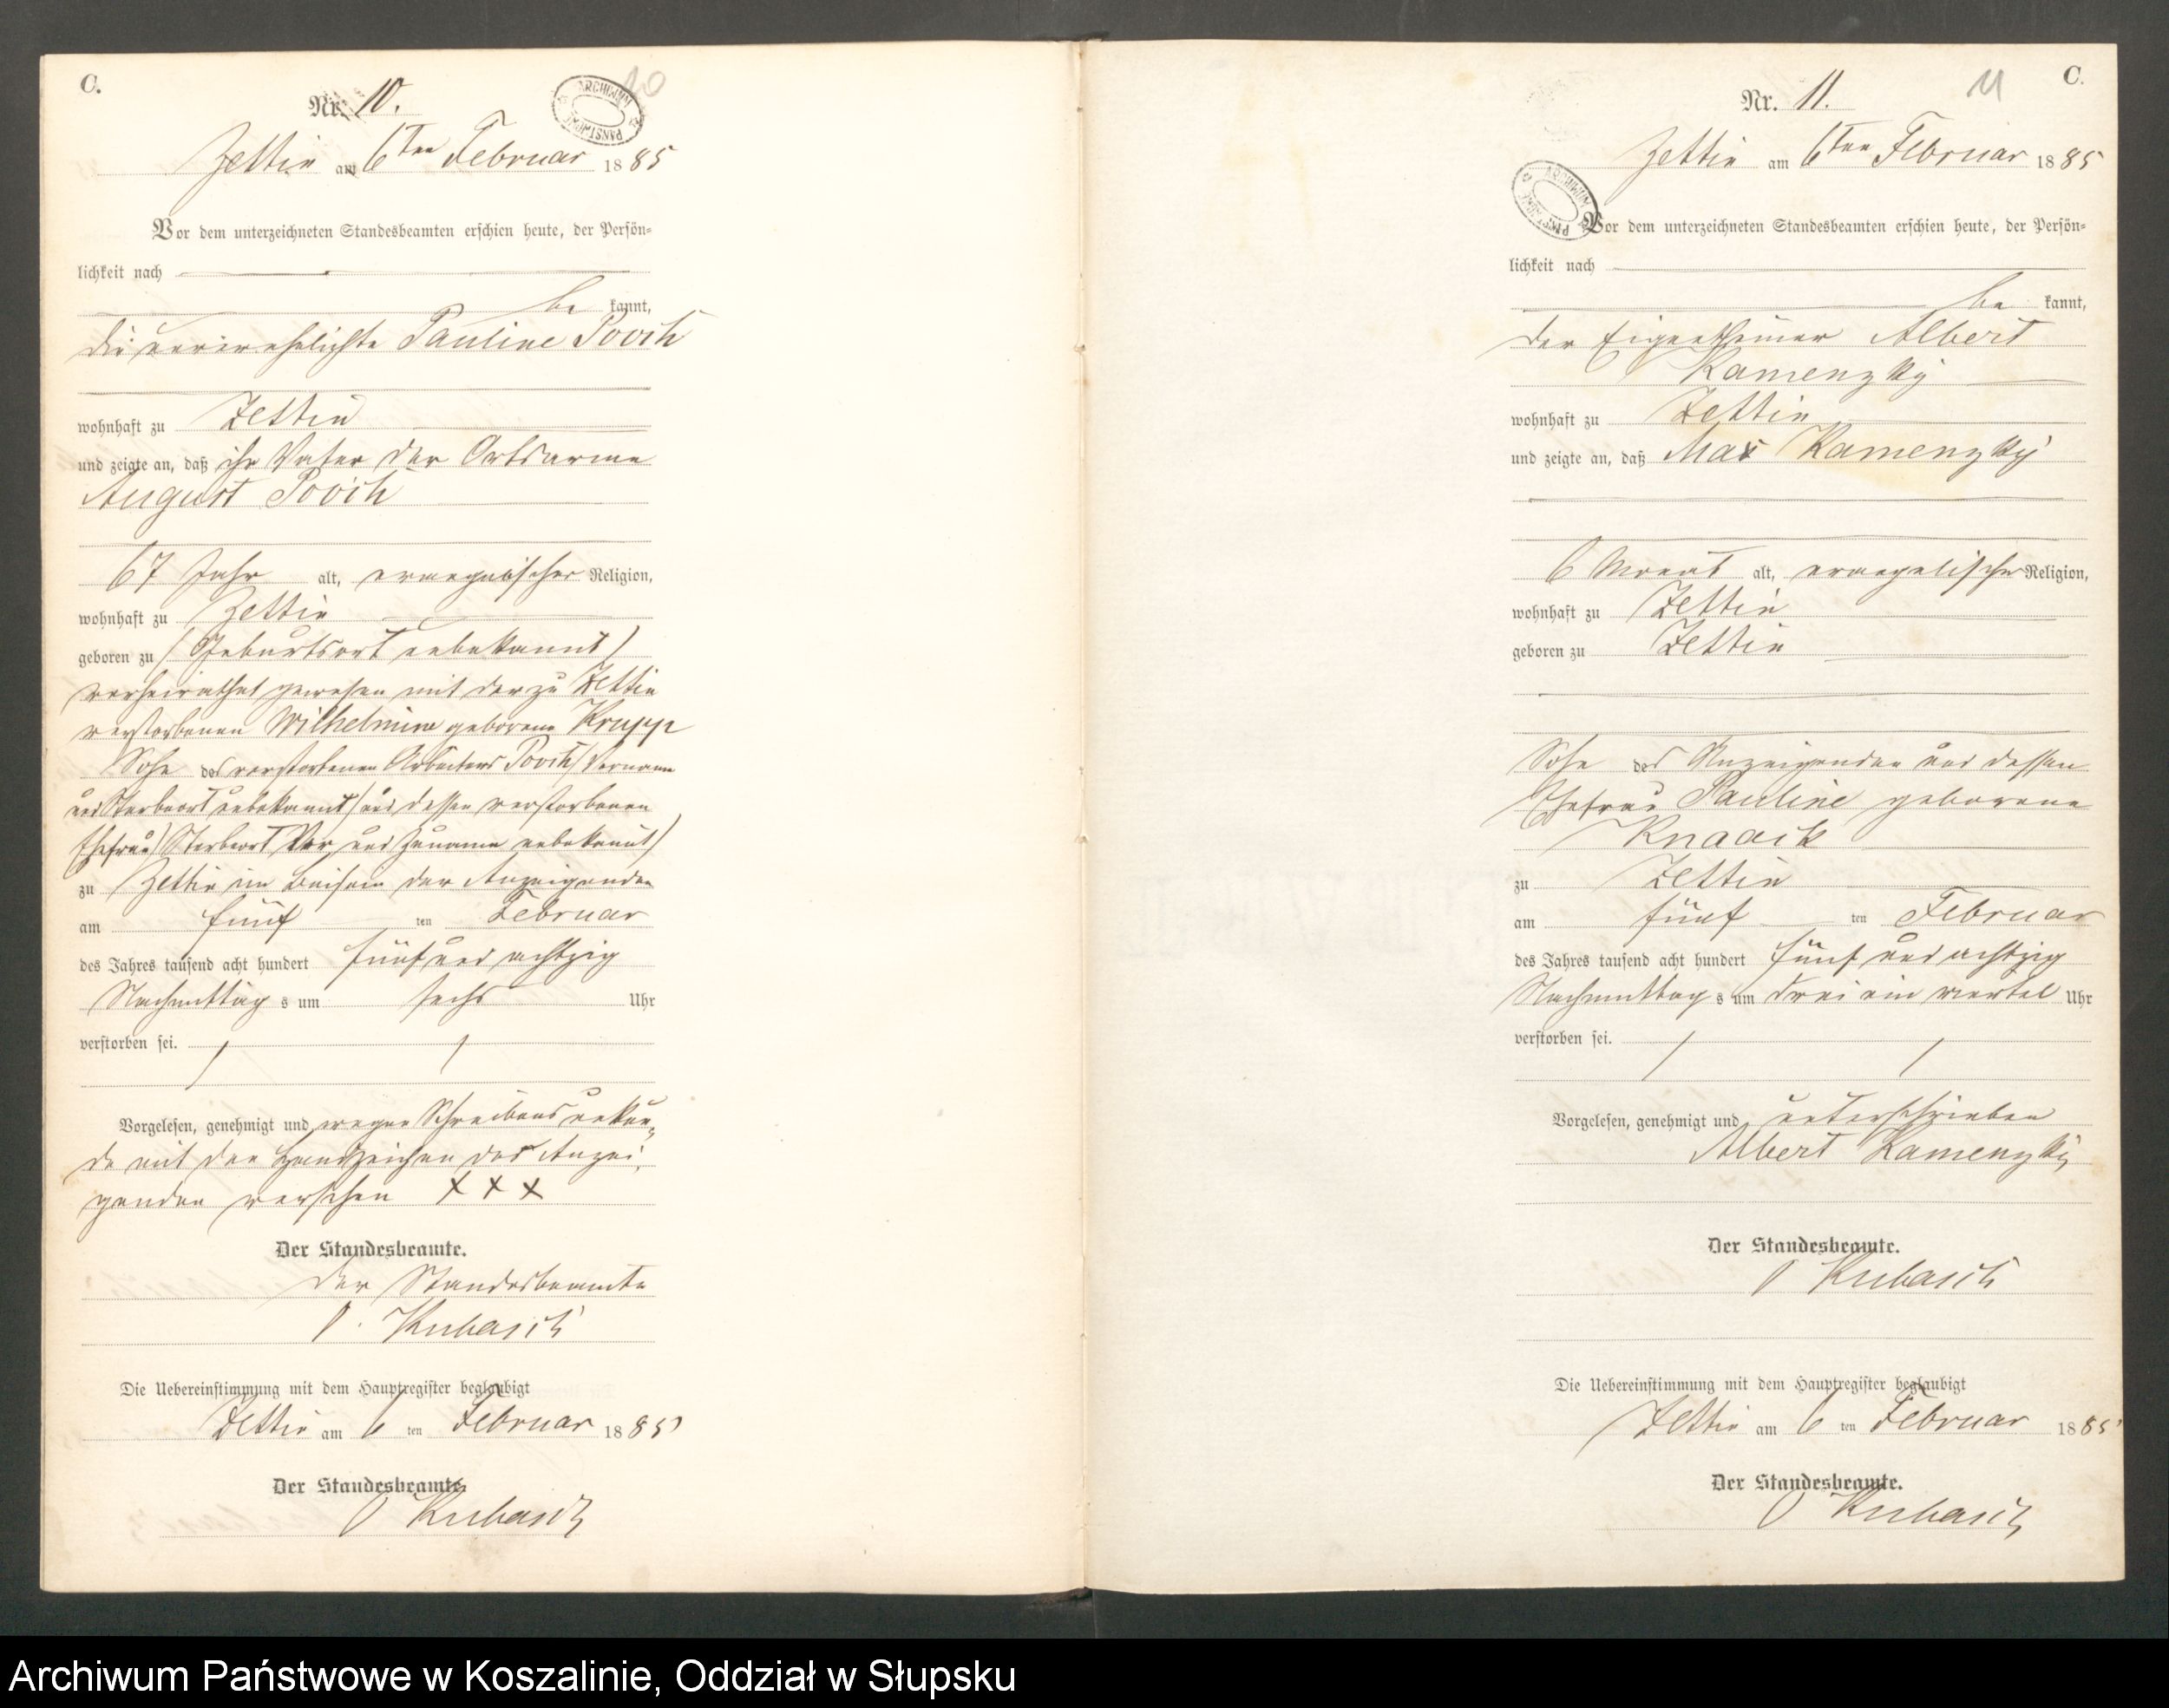 C.
Nr. 10.
10
ARCHIWUM PAŃSTWOWE
Zettin am 6ten Februar 1885
Vor dem unterzeichneten Standesbeamten erschien heute, der Persön-
lichkeit nach
be kannt,
die unverehelichte Pauline
wohnhaft zu Zettin
und zeigte an, daß ihr Vater der Ortsarme
August
67 Jahr alt, evangelischer Religion,
wohnhaft zu Zettin
geboren zu (Geburtsort unbekannt)
verheirathet gewesen mit der zu Zettin
verstorbenen Wilhelmine geborene Krupp
Sohn des verstorbenen Arbeiters (Vorname
und Sterbeort unbekannt) und dessen verstorbenen
Ehefrau (Sterbeort Vor und Zuname unbekannt)
zu Zettin im Beisein der Anzeigenden
am fünf ten Februar
des Jahres tausend acht hundert fünf und achtzig
Nachmittag s um sechs Uhr
verstorben sei.
Vorgelesen, genehmigt und wegen Schreibensunkun-
de mit den Handzeichen der Anzei-
genden versehen XXX
Der Standesbeamte.
Der Standesbeamte
Kubasch
Die Uebereinstimmung mit dem Hauptregister beglaubigt
Zettin am 6 ten Februar 1885
Der Standesbeamte.
Kubasch
C.
Nr. 11.
11
ARCHIWUM PAŃSTWOWE
Zettin am 6ten Februar 1885
Vor dem unterzeichneten Standesbeamten erschien heute, der Persön-
lichkeit nach
be kannt,
der Eigenthümer Albert
Kamenzky
wohnhaft zu Zettin
und zeigte an, daß Max Kamenzky
6 Monat alt, evangelischer Religion,
wohnhaft zu Zettin
geboren zu Zettin
Sohn des Anzeigenden und dessen
Ehefrau Pauline geborene
Knaack
zu Zettin
am fünf ten Februar
des Jahres tausend acht hundert fünf und achtzig
Nachmittag s um drei ein viertel Uhr
verstorben sei.
Vorgelesen, genehmigt und unterschrieben
Albert Kamenzky
Der Standesbeamte.
Kubasch
Die Uebereinstimmung mit dem Hauptregister beglaubigt
Zettin am 6 ten Februar 1885
Der Standesbeamte.
Kubasch
Archiwum Państwowe w Koszalinie, Oddział w Słupsku